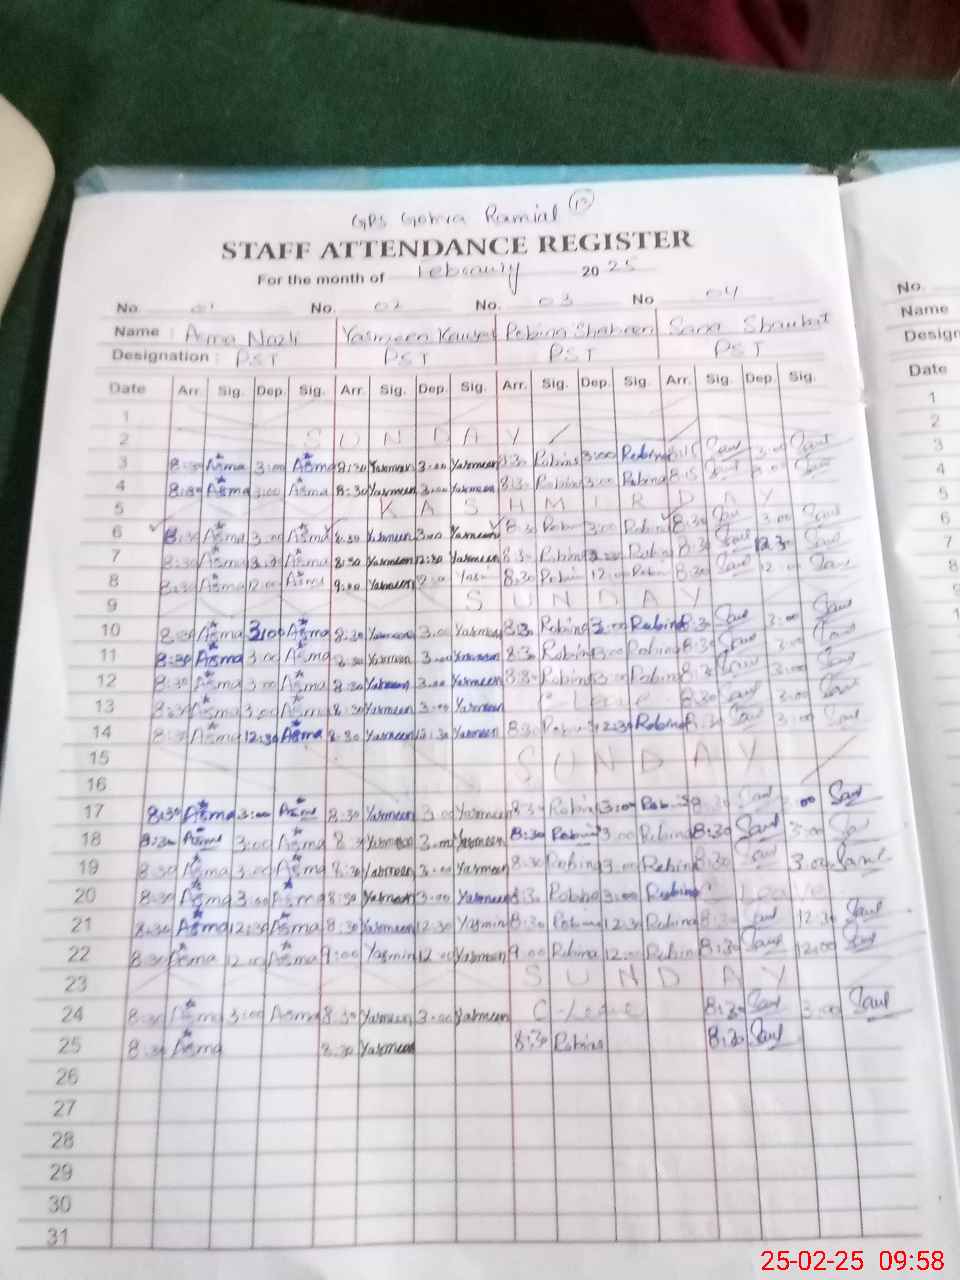 GPS Gohra Ramial
STAFF ATTENDANCE REGISTER
For the month of February 2025
No. 01 No. 02 No. 03 No 04
Name : Asma Nazli Yasmeen Kausar Robina Shaheen Sana Shaukat
Designation : PST PST PST PST
Date Arr. Sig. Dep. Sig. Arr. Sig. Dep. Sig. Arr. Sig. Dep. Sig. Arr. Sig. Dep. Sig.
1
2 SUNDAY
3 8:30 Asma 3:00 Asma 8:30 Yasmeen 3:00 Yasmeen 8:30 Robina 3:00 Robina 8:15 3:00
4 8:30 Asma 3:00 Asma 8:30 Yasmeen 3:00 Yasmeen 8:30 Robina 3:00 Robina 8:15 3:00
5 KASHMIR DAY
6 8:30 Asma 3:00 Asma 8:30 Yasmeen 3:00 Yasmeen 8:30 Robina 3:00 Robina 8:30 3:00
7 8:30 Asma Asma 8:30 Yasmeen 12:30 Yasmeen 8:30 Robina Robina 8:30 12:30
8 8:30 Asma 12:00 Asma 9:00 Yasmeen 12:00 8:30 Robina 12:00 Robina 8:30 12:00
9 SUNDAY
10 8:30 Asma 3:00 Asma 8:30 Yasmeen 3:00 Yasmeen 8:30 Robina 3:00 Robina 8:30 3:00
11 8:30 Asma 3:00 Asma 8:30 Yasmeen 3:00 Yasmeen 8:30 Robina 3:00 Robina 8:30 3:00
12 8:30 Asma 3:00 Asma 8:30 Yasmeen 3:00 Yasmeen 8:30 Robina 3:00 Robina 8:30 3:00
13 8:30 Asma 3:00 Asma 8:30 Yasmeen 3:00 Yasmeen C-Leave 8:30 3:00
14 8:30 Asma 12:30 Asma 8:30 Yasmeen 12:30 Yasmeen 8:30 Robina 12:30 Robina 8:30
15 SUNDAY
16
17 8:30 Asma 3:00 Asma 8:30 Yasmeen 3:00 Yasmeen 8:30 Robina 3:00 Robina 8:30 3:00
18 8:30 Asma 3:00 Asma 8:30 Yasmeen 3:00 Yasmeen 8:30 Robina 3:00 Robina 8:30 3:00
19 8:30 Asma 3:00 Asma 8:30 Yasmeen 3:00 Yasmeen 8:30 Robina 3:00 Robina 8:30 3:00
20 8:30 Asma 3:00 Asma 8:30 Yasmeen 3:00 Yasmeen 8:30 Robina 3:00 Robina Leave
21 8:30 Asma 12:30 Asma 8:30 Yasmeen 12:30 Yasmin 8:30 Robina 12:30 Robina 8:30 12:30
22 8:30 Asma 12:00 Asma 9:00 Yasmin 12:00 Yasmeen 9:00 Robina 12:00 Robina 8:30 12:00
23 SUNDAY
24 8:30 Asma 3:00 Asma 8:30 Yasmeen 3:00 Yasmeen C-Leave 8:30 3:00
25 8:30 Asma 8:30 Yasmeen 8:30 Robina 8:30
26
27
28
29
30
31
No.
Name
Design
Date
1
2
3
4
5
6
7
8
9
25-02-25 09:58